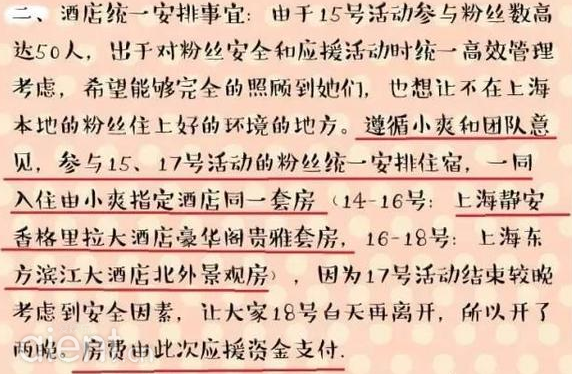 二、酒店统一安排事宜：由于15号活动参与粉丝数高
达50人，出于对粉丝安全和应援活动时统一高效管理
考虑，希望能够完全的照顾到她们，也想让不在上海
本地的粉丝住上好的环境的地方。遵循小爽和团队意
见，参与15、17号活动的粉丝统一安排住宿，一同
入住由小爽指定酒店同一套房（14-16号：上海静安
香格里拉大酒店豪华阁贵雅套房，16-18号：上海东
方滨江大酒店北外景观房），因为17号活动结束较晚
考虑到安全因素，让大家18号白天再离开，所以开了
两晚。房费由此次应援资金支付.